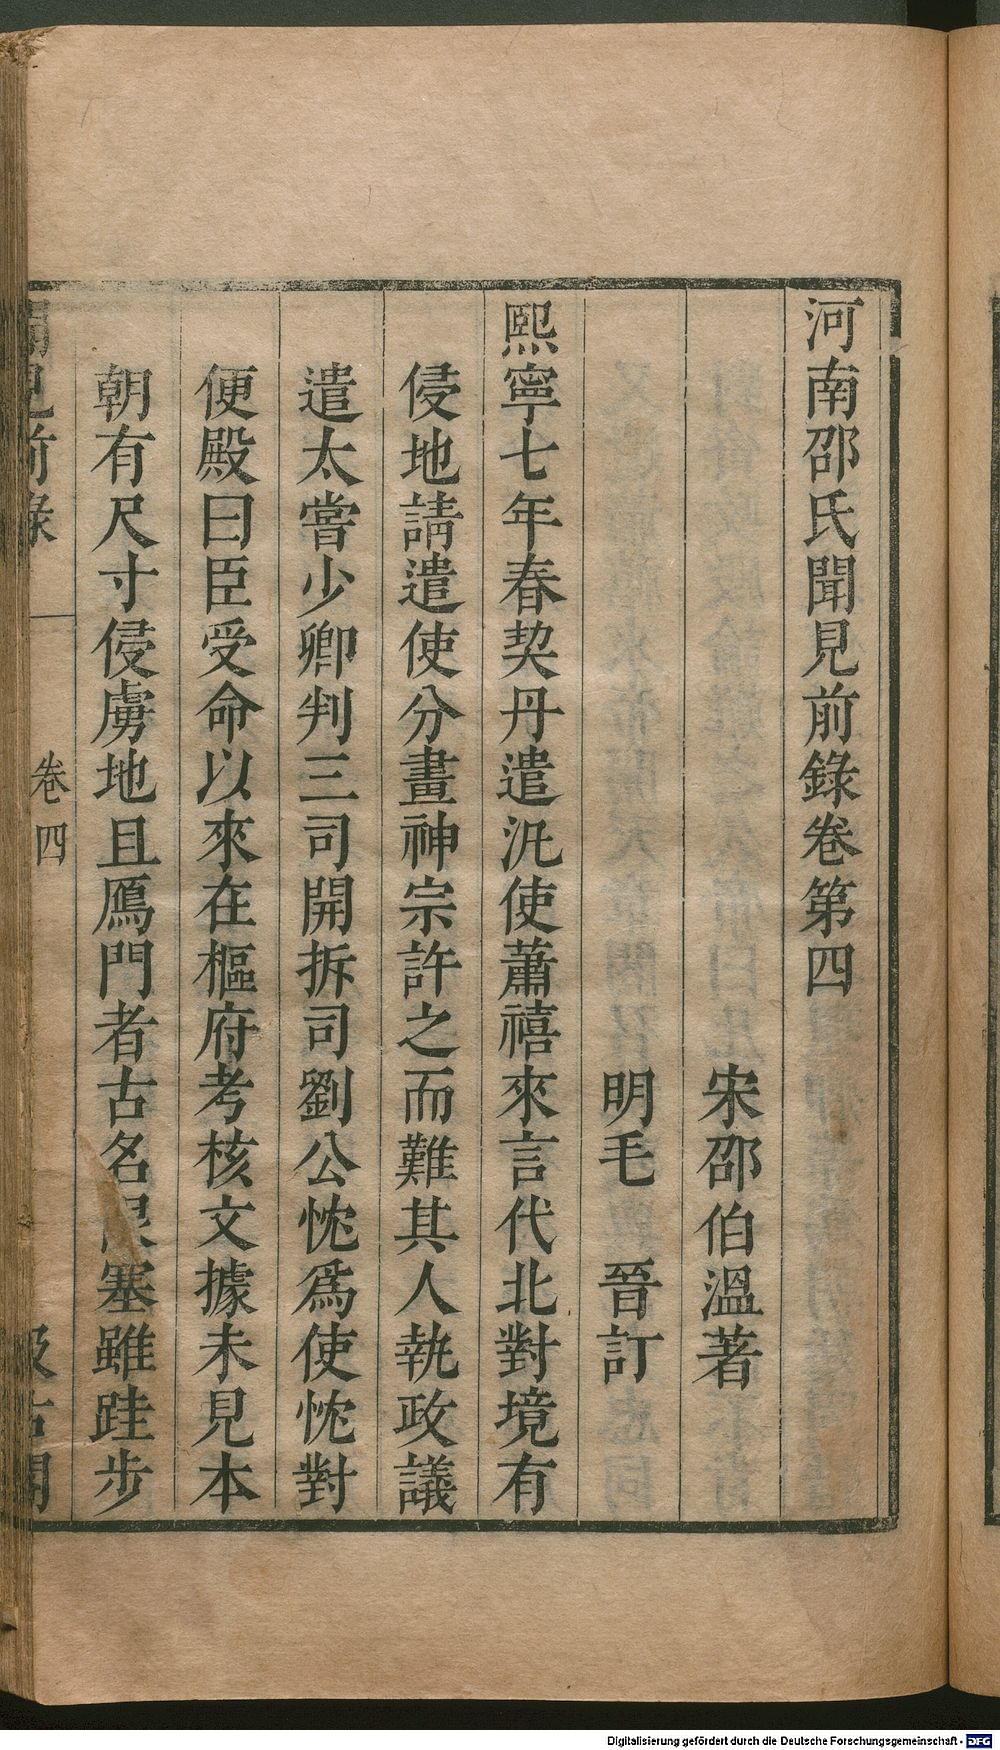 河南邵氏聞見前錄卷第四
宋邵伯溫著
明毛 晉訂
熙寧七年春契丹遣汎使蕭禧來言代北對境有
侵地請遣使分畫神宗許之而難其人執政議
遣太嘗少卿判三司開拆司劉公忱爲使忱對
便殿曰臣受命以來在樞府考核文據未見本
朝有尺寸侵虜地且鴈門者古名限塞雖跬步
聞見前錄
卷四
汲古閣
Digitalisierung gefördert durch die Deutsche Forschungsgemeinschaft - DFG